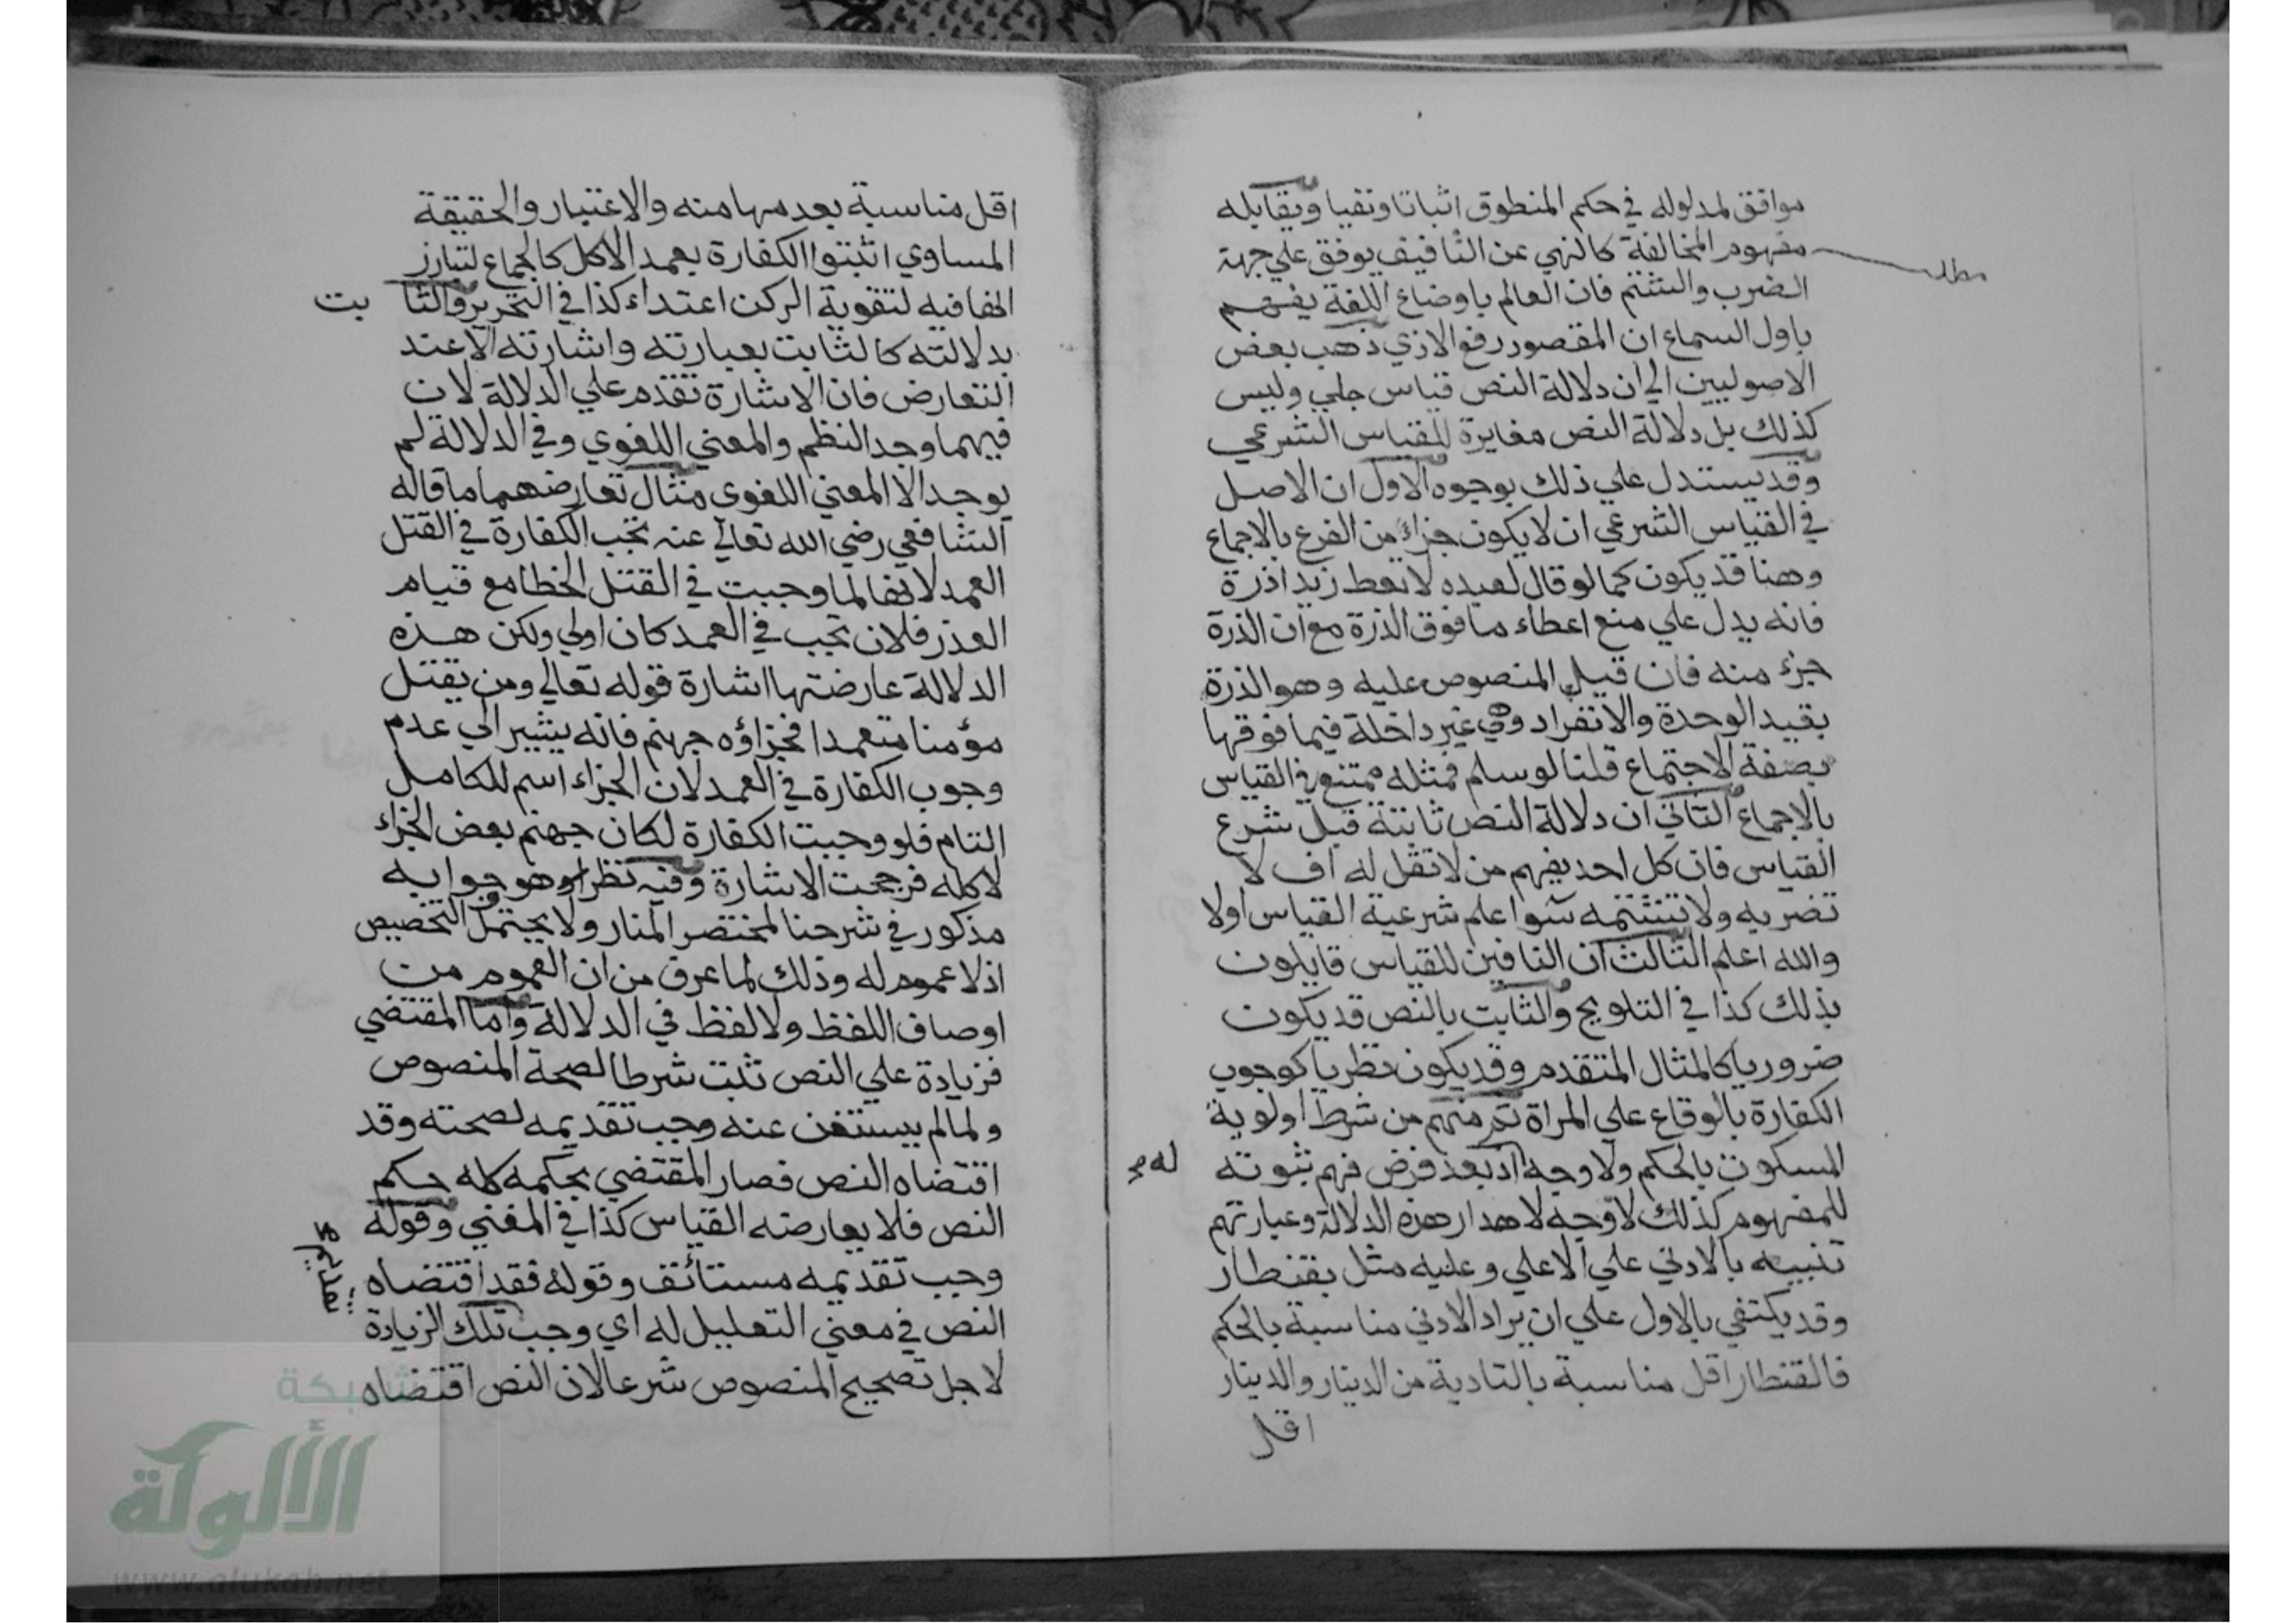 موافق لمدلوله في حكم المنطوق اثباتا ونفيا ويقابله
مفهوم المخالفة كالنهي عن التافيف يوقف علي جهة
مطلب
الضرب والشتم فان العالم باوضاع اللغة يفهم
باول السماع ان المقصود رفع الاذي ذهب بعض
الاصوليين الي ان دلالة النص قياس جلي وليس
كذلك بل دلالة النص مغايرة للقياس الشرعي
وقد يستدل علي ذلك بوجوه الاول ان الاصل
في القياس الشرعي ان لا يكون جزاء من الفرع بالاجماع
وهنا قد يكون كما لو قال لعبده لا تعط زيدا ذرة
فانه يدل علي منع اعطاء ما فوق الذرة مع ان الذرة
جزء منه فان قيل المنصوص عليه وهو الذرة
بقيد الوحدة والانفراد وهي غير داخلة فيما فوقها
بصفة الاجتماع قلنا لو سلم فمثله ممتنع في القياس
بالاجماع الثاني ان دلالة النص ثابتة قبل شرع
القياس فان كل احد يفهم من لا تقل له اف لا
تضربه ولا تشتمه سوا علم شرعية القياس اولا
والله اعلم الثالث ان النافين للقياس قايلون
بذلك كذا في التلويح والثابت بالنص قد يكون
ضروريا كالمثال المتقدم وقد يكون نظريا كوجوب
الكفارة بالوقاع علي المراة ثم منهم من شرط اولوية
المسكوت بالحكم ولا وجه اذ بعد فرض فهم ثبوته
له صح
للمفهوم كذلك لا وجه لاهدار هذه الدلالة وعبارتهم
تنبيه بالادني علي الاعلي وعليه مثل بقنطار
وقد يكتفي بالاول علي ان يراد الادني مناسبة بالحكم
فالقنطار اقل مناسبة بالتادية من الدينار والدينار
اقل
اقل مناسبة بعدمها منه والاعتبار والحقيقة
المساوي اثبتوا الكفارة بعمد الاكل كالجماع لتبارز
انهافيه لتقوية الركن اعتداء كذا في التحرير والثا بت
بدلالته كالثابت بعبارته واشارته الا عند
التعارض فان الاشارة تقدم علي الدلالة لان
فيهما وجد النظم والمعني اللغوي وفي الدلالة لم
يوجد الا المعني اللغوي مثال تعارضهما ما قاله
الشافعي رضي الله تعالي عنه تجب الكفارة في القتل
العمد لانها لما وجبت في القتل الخطا مع قيام
العذر فلان تجب في العمد كان اولي ولكن هذه
الدلالة عارضتها اشارة قوله تعالي ومن يقتل
مؤمنا متعمدا فجزاؤه جهنم فانه يشير الي عدم
وجوب الكفارة في العمد لان الجزاء اسم للكامل
التام فلو وجبت الكفارة لكان جهنم بعض الجزاء
لا كله فرجحت الاشارة وفيه نظر وهو جوابه
مذكور في شرحنا لمختصر المنار ولا يحتمل التخصيص
اذ لا عموم له وذلك لما عرف من ان العموم من
اوصاف اللفظ ولا لفظ في الدلالة واما المقتضي
فزيادة علي النص ثبت شرطا لصحة المنصوص
ولما لم يستغن عنه وجب تقديمه لصحته وقد
اقتضاه النص فصار المقتضي بحكمه كله حكم
النص فلا يعارضه القياس كذا في المغني وقوله
وجب تقديمه مستانف وقوله فقد اقتضاه
النص في معني التعليل له اي وجب تلك الزيادة
لاجل تصحيح المنصوص شرعا لان النص اقتضاه
شبكة
الألوكة
www.alukah.net